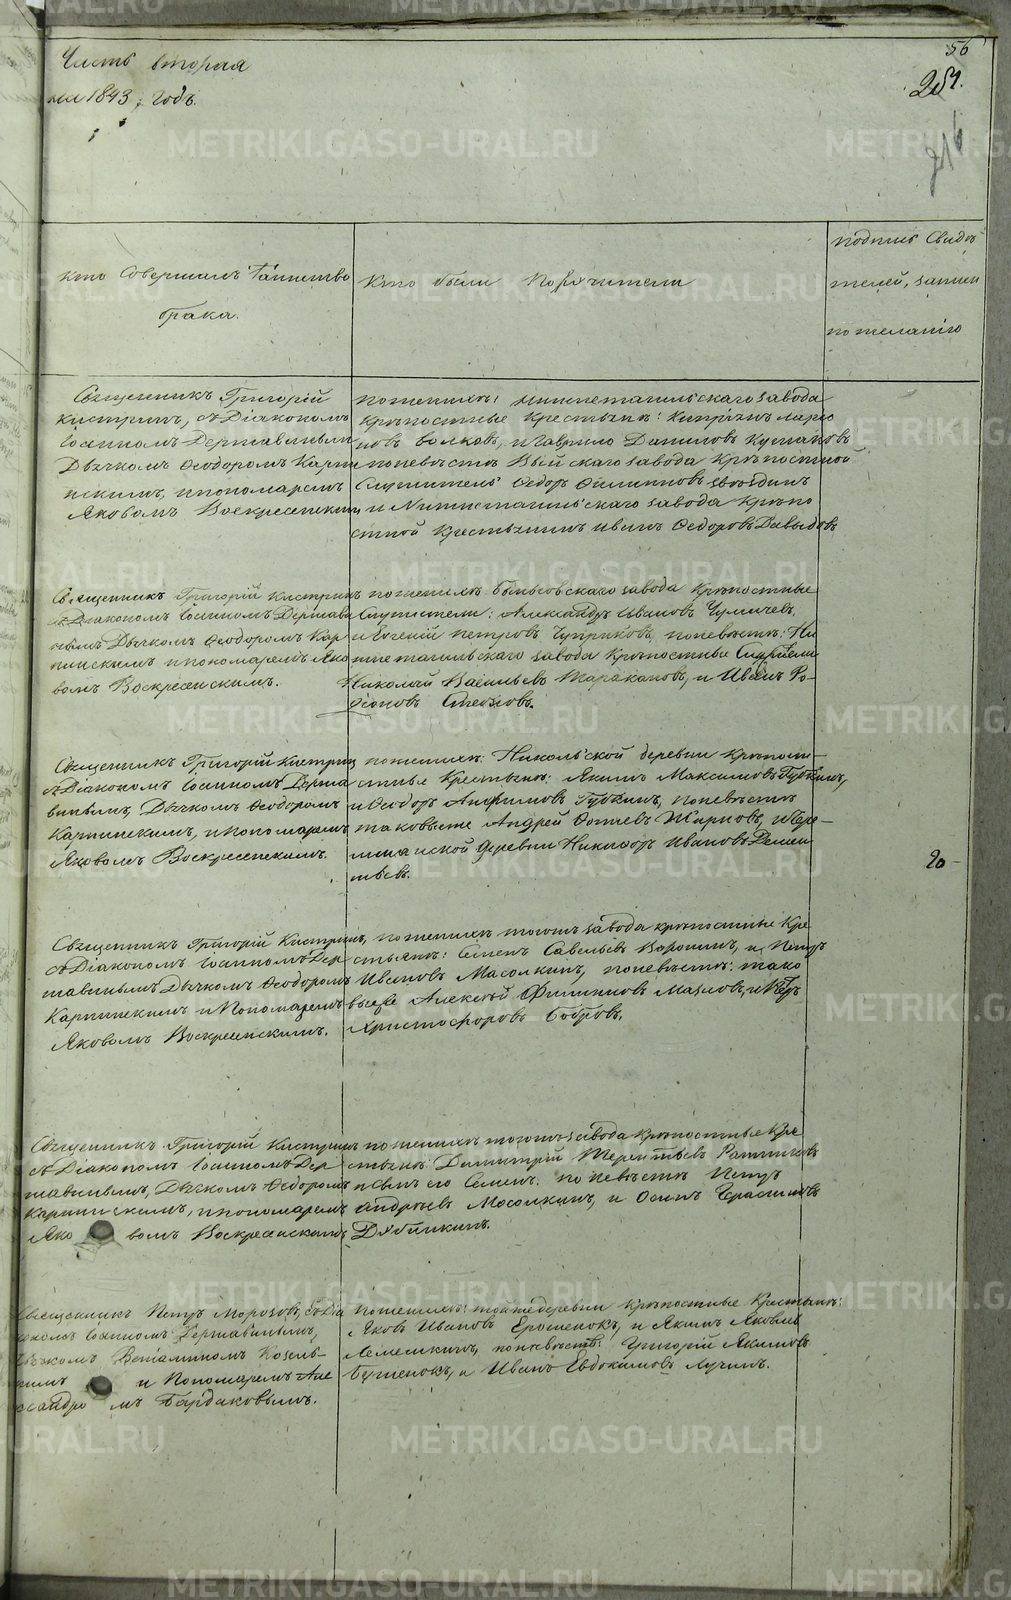 56
Часть вторая
на 1843, годъ.
251.
216
кто Совершалъ Таинство
брака.
Кто были Поручители
подпись Свидѣ
телей, записи
по желанію
Священникъ Григорій
Кистринъ, съ Діакономъ
Іоанномъ Державинымъ
Дьячкомъ Ѳеодоромъ Карпи
нскимъ, и пономаремъ
Яковомъ Воскресенскимъ
по женихѣ: Нижнетагильскаго завода
Крѣпостные Крестьяне: Ларіо
новъ Волковъ, и Гаврило Даниловъ
по невѣстѣ Выйскаго завода Крѣпостной
Служитель Ѳедоръ Филиповъ
и Нижнетагильскаго завода Крѣпо
стной Крестьянинъ Иванъ Ѳедоровъ Давыдовъ
Священникъ Григорій Кистринъ
съ Діакономъ Іоанномъ Держави
нымъ Дьячкомъ Ѳеодоромъ Кар
пинскимъ и пономаремъ Яко
вомъ Воскресенскимъ.
по женихѣ Быньговскаго завода Крѣпостные
Служители: Александръ Ивановъ
и Евгеній Петровъ Чуприковъ, по невѣстѣ: Ни
жнетагильскаго завода Крѣпостные Служители
Николай Васильевъ Таракановъ, и Иванъ Ро-
діоновъ
Священникъ Григорій Кистринъ
съ Діакономъ Іоанномъ Держа
винымъ, Дьячкомъ Ѳеодоромъ
Карпинскимъ, и пономаремъ
Яковомъ Воскресенскимъ.
по женихѣ: Никольской деревни Крѣпост-
ные Крестьяне: Якимъ Максимовъ Губкинъ,
и Ѳедоръ Анфимовъ Губкинъ, по невѣстѣ
таковые Андрей Фотеевъ Жирновъ, и
деревни Никифоръ Ивановъ Демен
тьевъ.
20
Священникъ Григорій Кистринъ,
съ Діакономъ Іоанномъ Дер
жавинымъ Дьячкомъ Ѳеодоромъ
Карпинскимъ и Пономаремъ
Яковомъ Воскресенскимъ.
по женихѣ тогожъ завода крѣпостные Кре
стьяне: Семенъ Савельевъ Воронинъ, и Петръ
Ивановъ Масалкинъ, по невѣстѣ: тако
Алексѣй Филиповъ Мазловъ, и Петръ
Христофоровъ Бобровъ.
Священникъ Григорій Кистринъ
съ Діакономъ Іоанномъ Дер
жавинымъ, Дьячкомъ Ѳедоромъ
Карпинскимъ, и пономаремъ
Яковомъ Воскресенскимъ
по женихѣ тогожъ завода крѣпостные Кре
стьяне Димитрій Терентьевъ
и сынъ его Семенъ: по невѣстѣ Петръ
Андреевъ Мосалкинъ, и Осипъ Герасимовъ
Дубинкинъ.
Священникъ Петръ Морозовъ, съ Діа
кономъ Іоанномъ Державинымъ,
Дьячкомъ Веніаминомъ Козель-
скимъ и Пономаремъ Але
ксандромъ Бардаковымъ.
по женихѣ: той же деревни крѣпостные Крестьяне:
Яковъ Ивановъ Ерошенокъ, и Якимъ Яковлевъ
по невѣстѣ: Григорій Якимовъ
Бушенокъ, и Иванъ Евдокимовъ Лучинъ.
METRIKI.GASO-URAL.RU